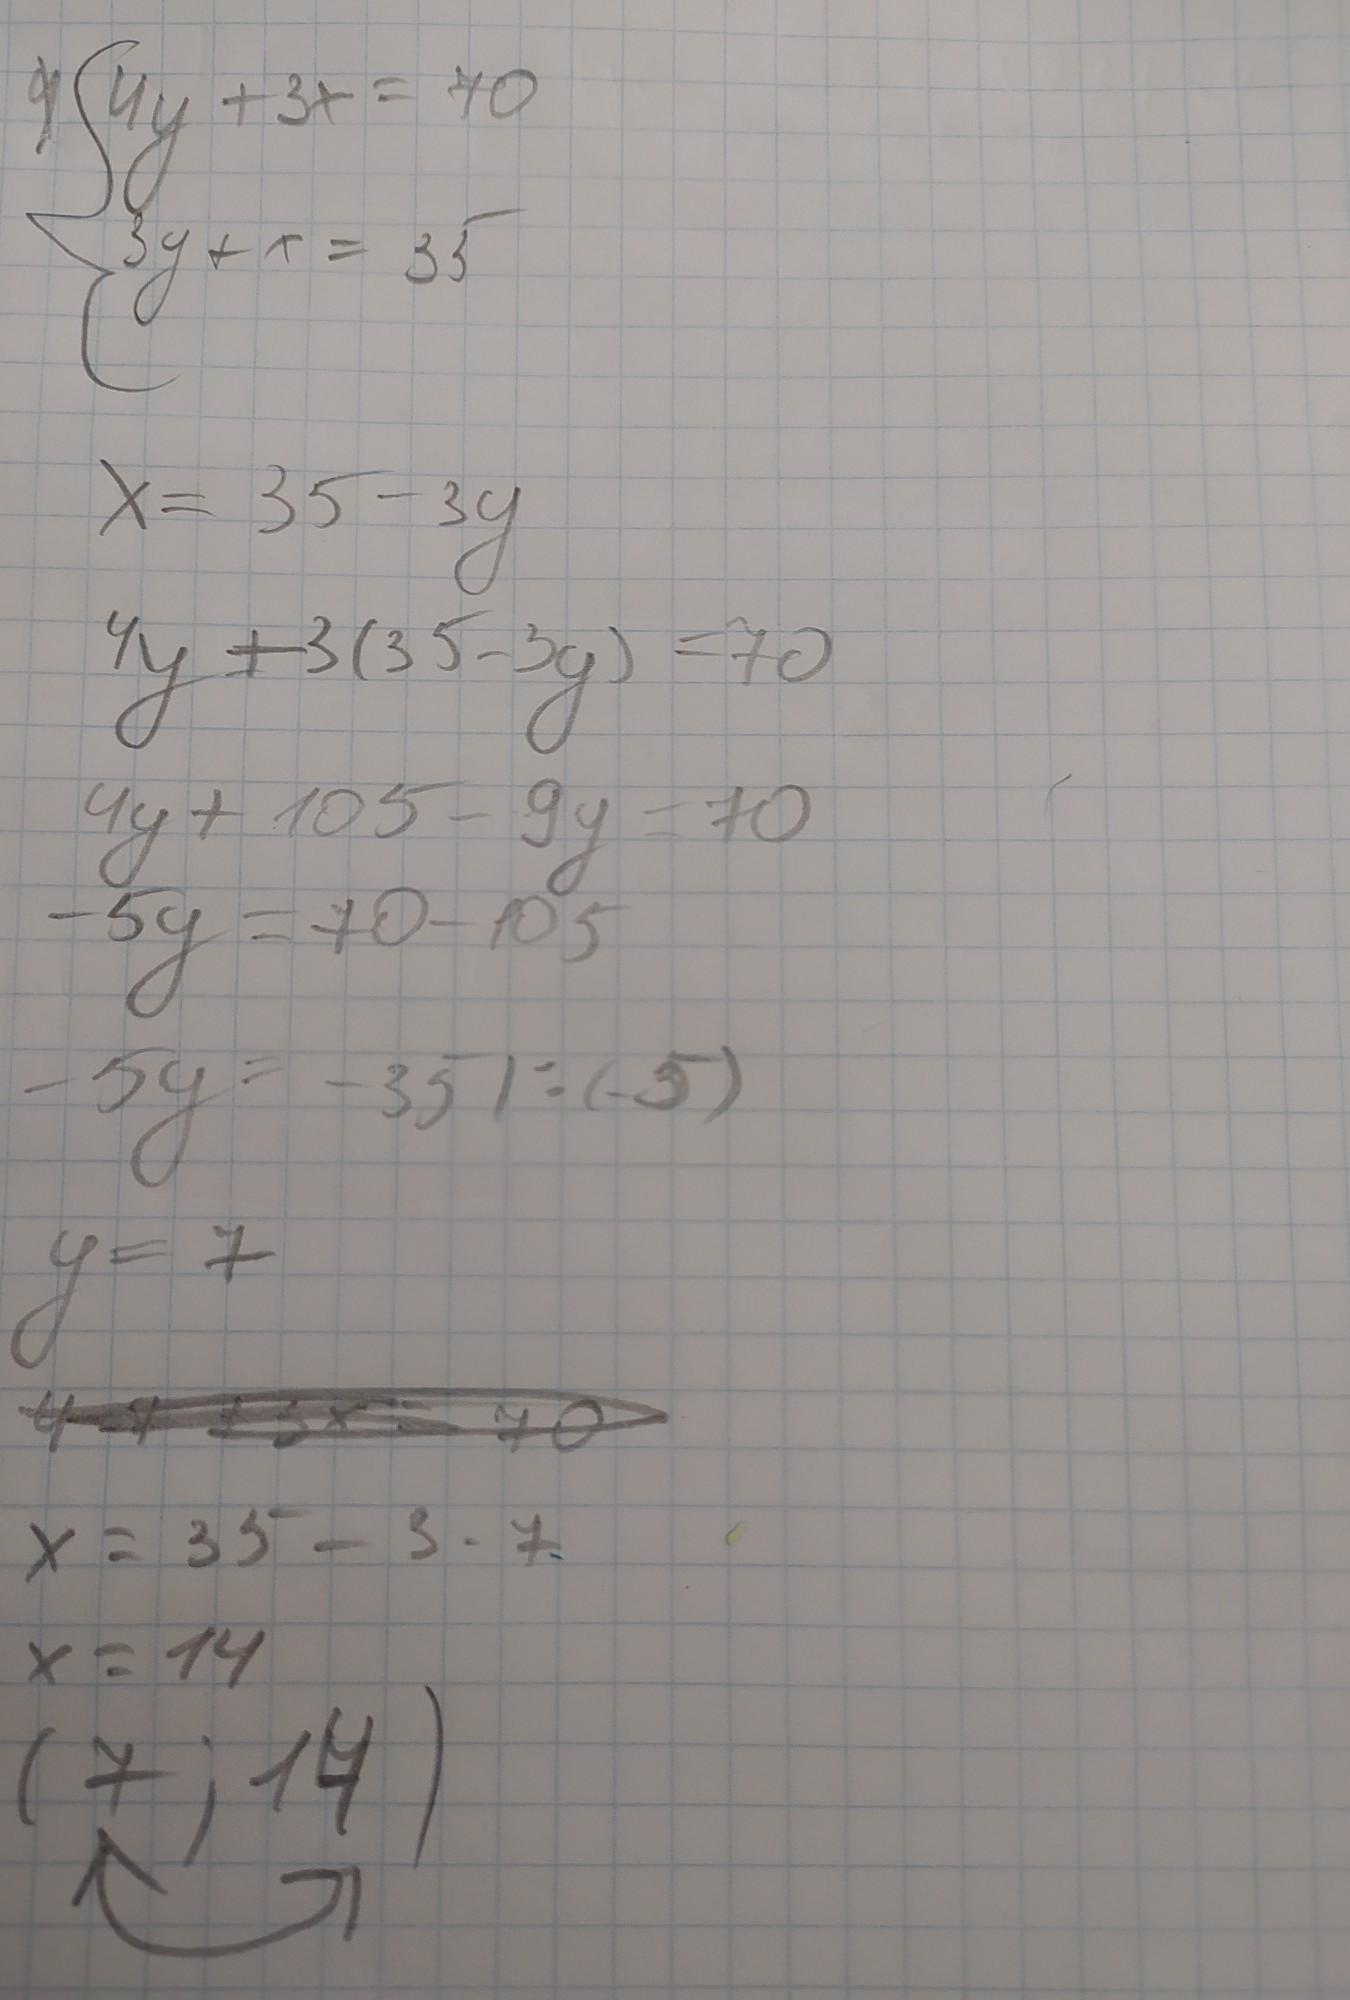 4y + 3x = 70
3y + x = 35
x = 35 - 3y
4y + 3(35 - 3y) = 70
4y + 105 - 9y = 70
-5y = 70 - 105
-5y = -35 | : (-5)
y = 7
4 · 7 + 3x = 70
x = 35 - 3 · 7
x = 14
(7; 14)